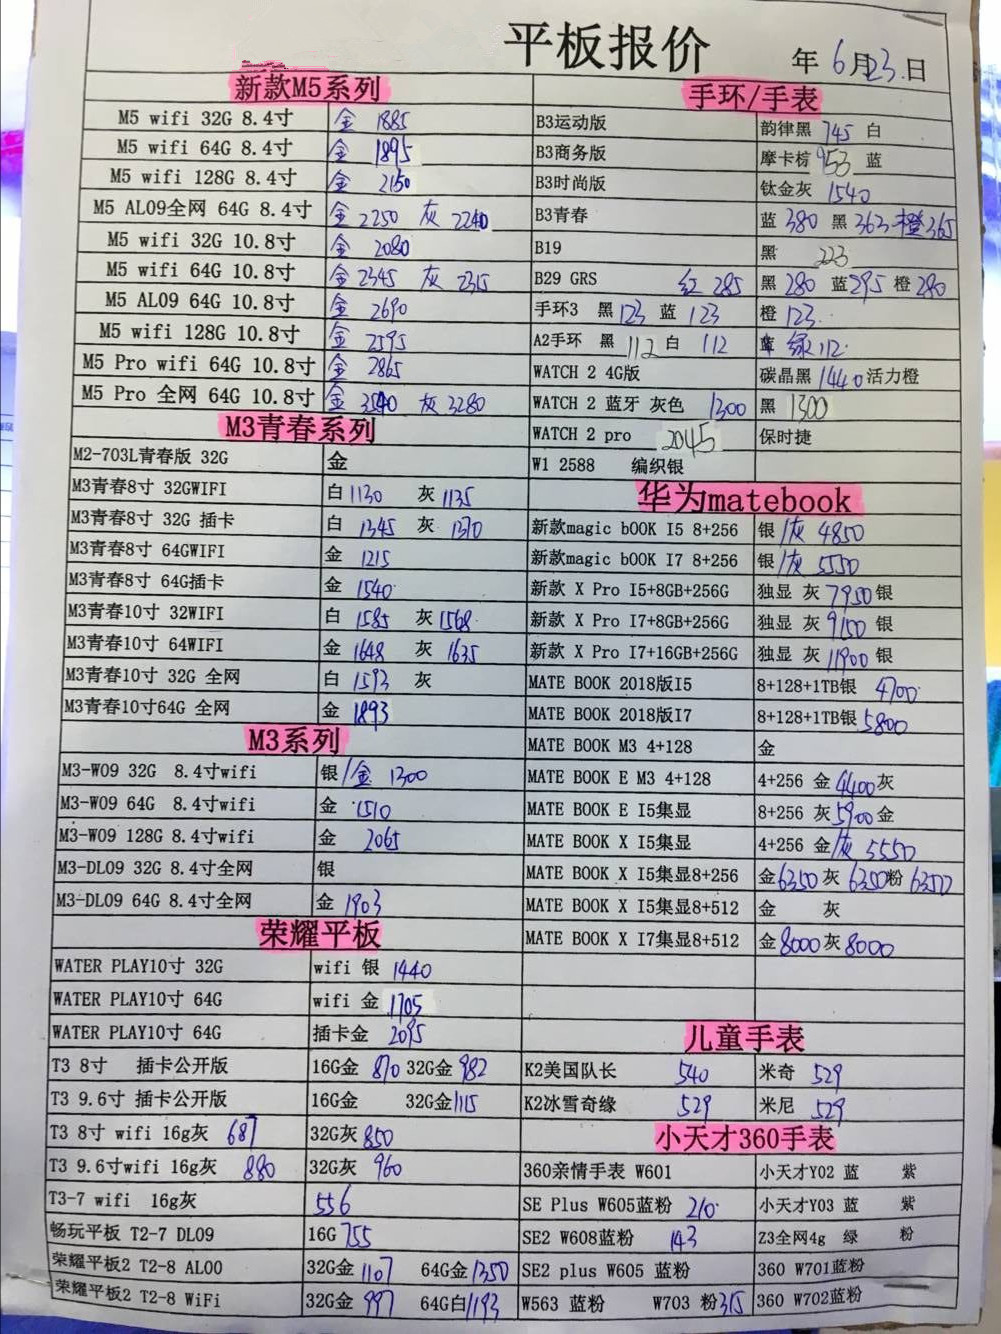 平板报价
年 6月23日
新款M5系列
M5 wifi 32G 8.4寸 金 1885
M5 wifi 64G 8.4寸 金 1895
M5 wifi 128G 8.4寸 金 2150
M5 AL09全网 64G 8.4寸 金 2250 灰 2240
M5 wifi 32G 10.8寸 金 2080
M5 wifi 64G 10.8寸 金 2345 灰 2315
M5 AL09 64G 10.8寸 金 2690
M5 wifi 128G 10.8寸 金 2595
M5 Pro wifi 64G 10.8寸 金 2865
M5 Pro 全网 64G 10.8寸 金 灰 3280
M3青春系列
M2-703L青春版 32G 金
M3青春8寸 32GWIFI 白 1130 灰 1135
M3青春8寸 32G 插卡 白 1345 灰 1370
M3青春8寸 64GWIFI 金 1215
M3青春8寸 64G插卡 金 1540
M3青春10寸 32WIFI 白 1585 灰 1568
M3青春10寸 64WIFI 金 1648 灰 1635
M3青春10寸 32G 全网 白 1593 灰
M3青春10寸64G 全网 金 1893
M3系列
M3-W09 32G 8.4寸wifi 银/金 1300
M3-W09 64G 8.4寸wifi 金 1510
M3-W09 128G 8.4寸wifi 金 2065
M3-DL09 32G 8.4寸全网 银
M3-DL09 64G 8.4寸全网 金 1903
荣耀平板
WATER PLAY10寸 32G wifi 银 1440
WATER PLAY10寸 64G wifi 金 1705
WATER PLAY10寸 64G 插卡金 2095
T3 8寸 插卡公开版 16G金 870 32G金 982
T3 9.6寸 插卡公开版 16G金 32G金 1115
T3 8寸 wifi 16g灰 687 32G灰 850
T3 9.6寸wifi 16g灰 880 32G灰 960
T3-7 wifi 16g灰 556
畅玩平板 T2-7 DL09 16G 755
荣耀平板2 T2-8 AL00 32G金 1107 64G金 1350
荣耀平板2 T2-8 WiFi 32G金 997 64G白 1193
手环/手表
B3运动版 韵律黑 745 白
B3商务版 摩卡棕 953 蓝
B3时尚版 钛金灰 1540
B3青春 蓝 380 黑 363 橙 365
B19 黑 223
B29 GRS 红 285 黑 280 蓝 295 橙 280
手环3 黑 123 蓝 123 橙 123
A2手环 黑 112 白 112 绿 112
WATCH 2 4G版 碳晶黑 1440 活力橙
WATCH 2 蓝牙 灰色 1300 黑 1300
WATCH 2 pro 2045 保时捷
W1 2588 编织银
华为matebook
新款magic bOOK I5 8+256 银/灰 4850
新款magic bOOK I7 8+256 银/灰 5550
新款 X Pro I5+8GB+256G 独显 灰 7950 银
新款 X Pro I7+8GB+256G 独显 灰 9100 银
新款 X Pro I7+16GB+256G 独显 灰 11900 银
MATE BOOK 2018版I5 8+128+1TB银 4700
MATE BOOK 2018版I7 8+128+1TB银 5800
MATE BOOK M3 4+128 金
MATE BOOK E M3 4+128 4+256 金 4400 灰
MATE BOOK E I5集显 8+256 灰 5900 金
MATE BOOK X I5集显 4+256 金/灰 5550
MATE BOOK X I5集显8+256 金 6350 灰 6350 粉 6350
MATE BOOK X I5集显8+512 金 灰
MATE BOOK X I7集显8+512 金 8000 灰 8000
儿童手表
K2美国队长 540 米奇 529
K2冰雪奇缘 529 米尼 529
小天才360手表
360亲情手表 W601 小天才Y02 蓝 紫
SE Plus W605蓝粉 210 小天才Y03 蓝 紫
SE2 W608蓝粉 143 Z3全网4g 绿 粉
SE2 plus W605 蓝粉 360 W701蓝粉
W563 蓝粉 W703 粉 315 360 W702蓝粉